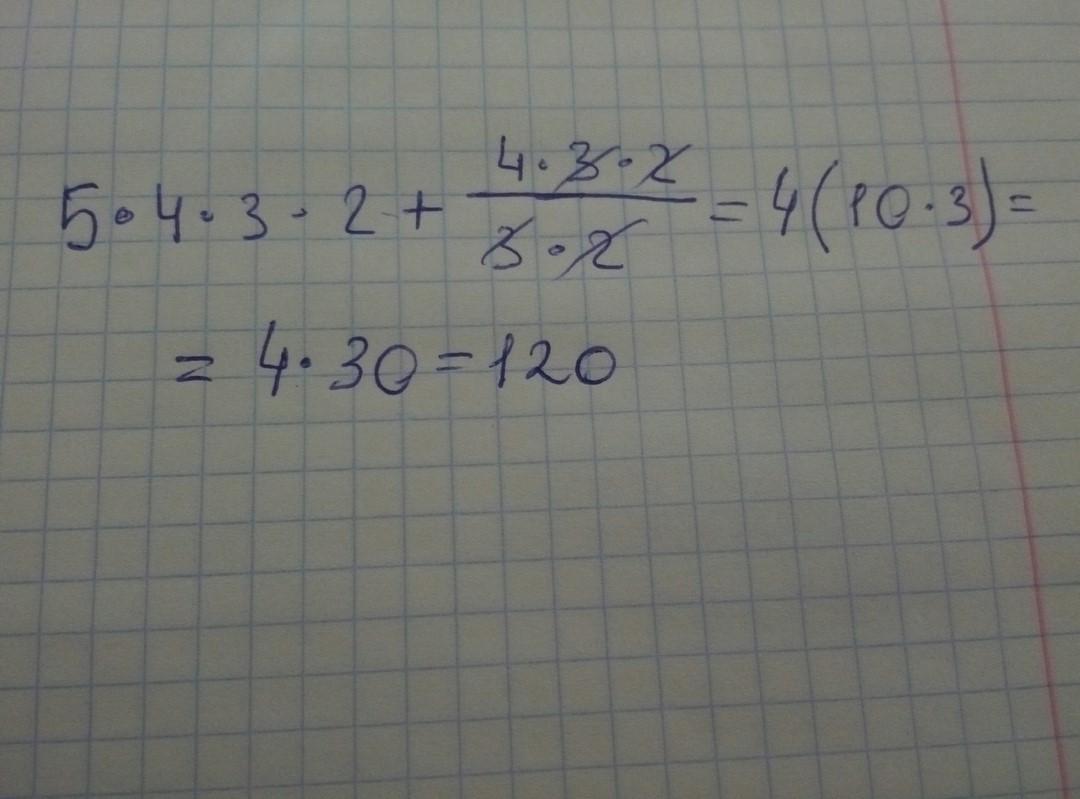 5·4·3·2+ (4·3·2)/(3·2) = 4(10·3)=
= 4·30=120